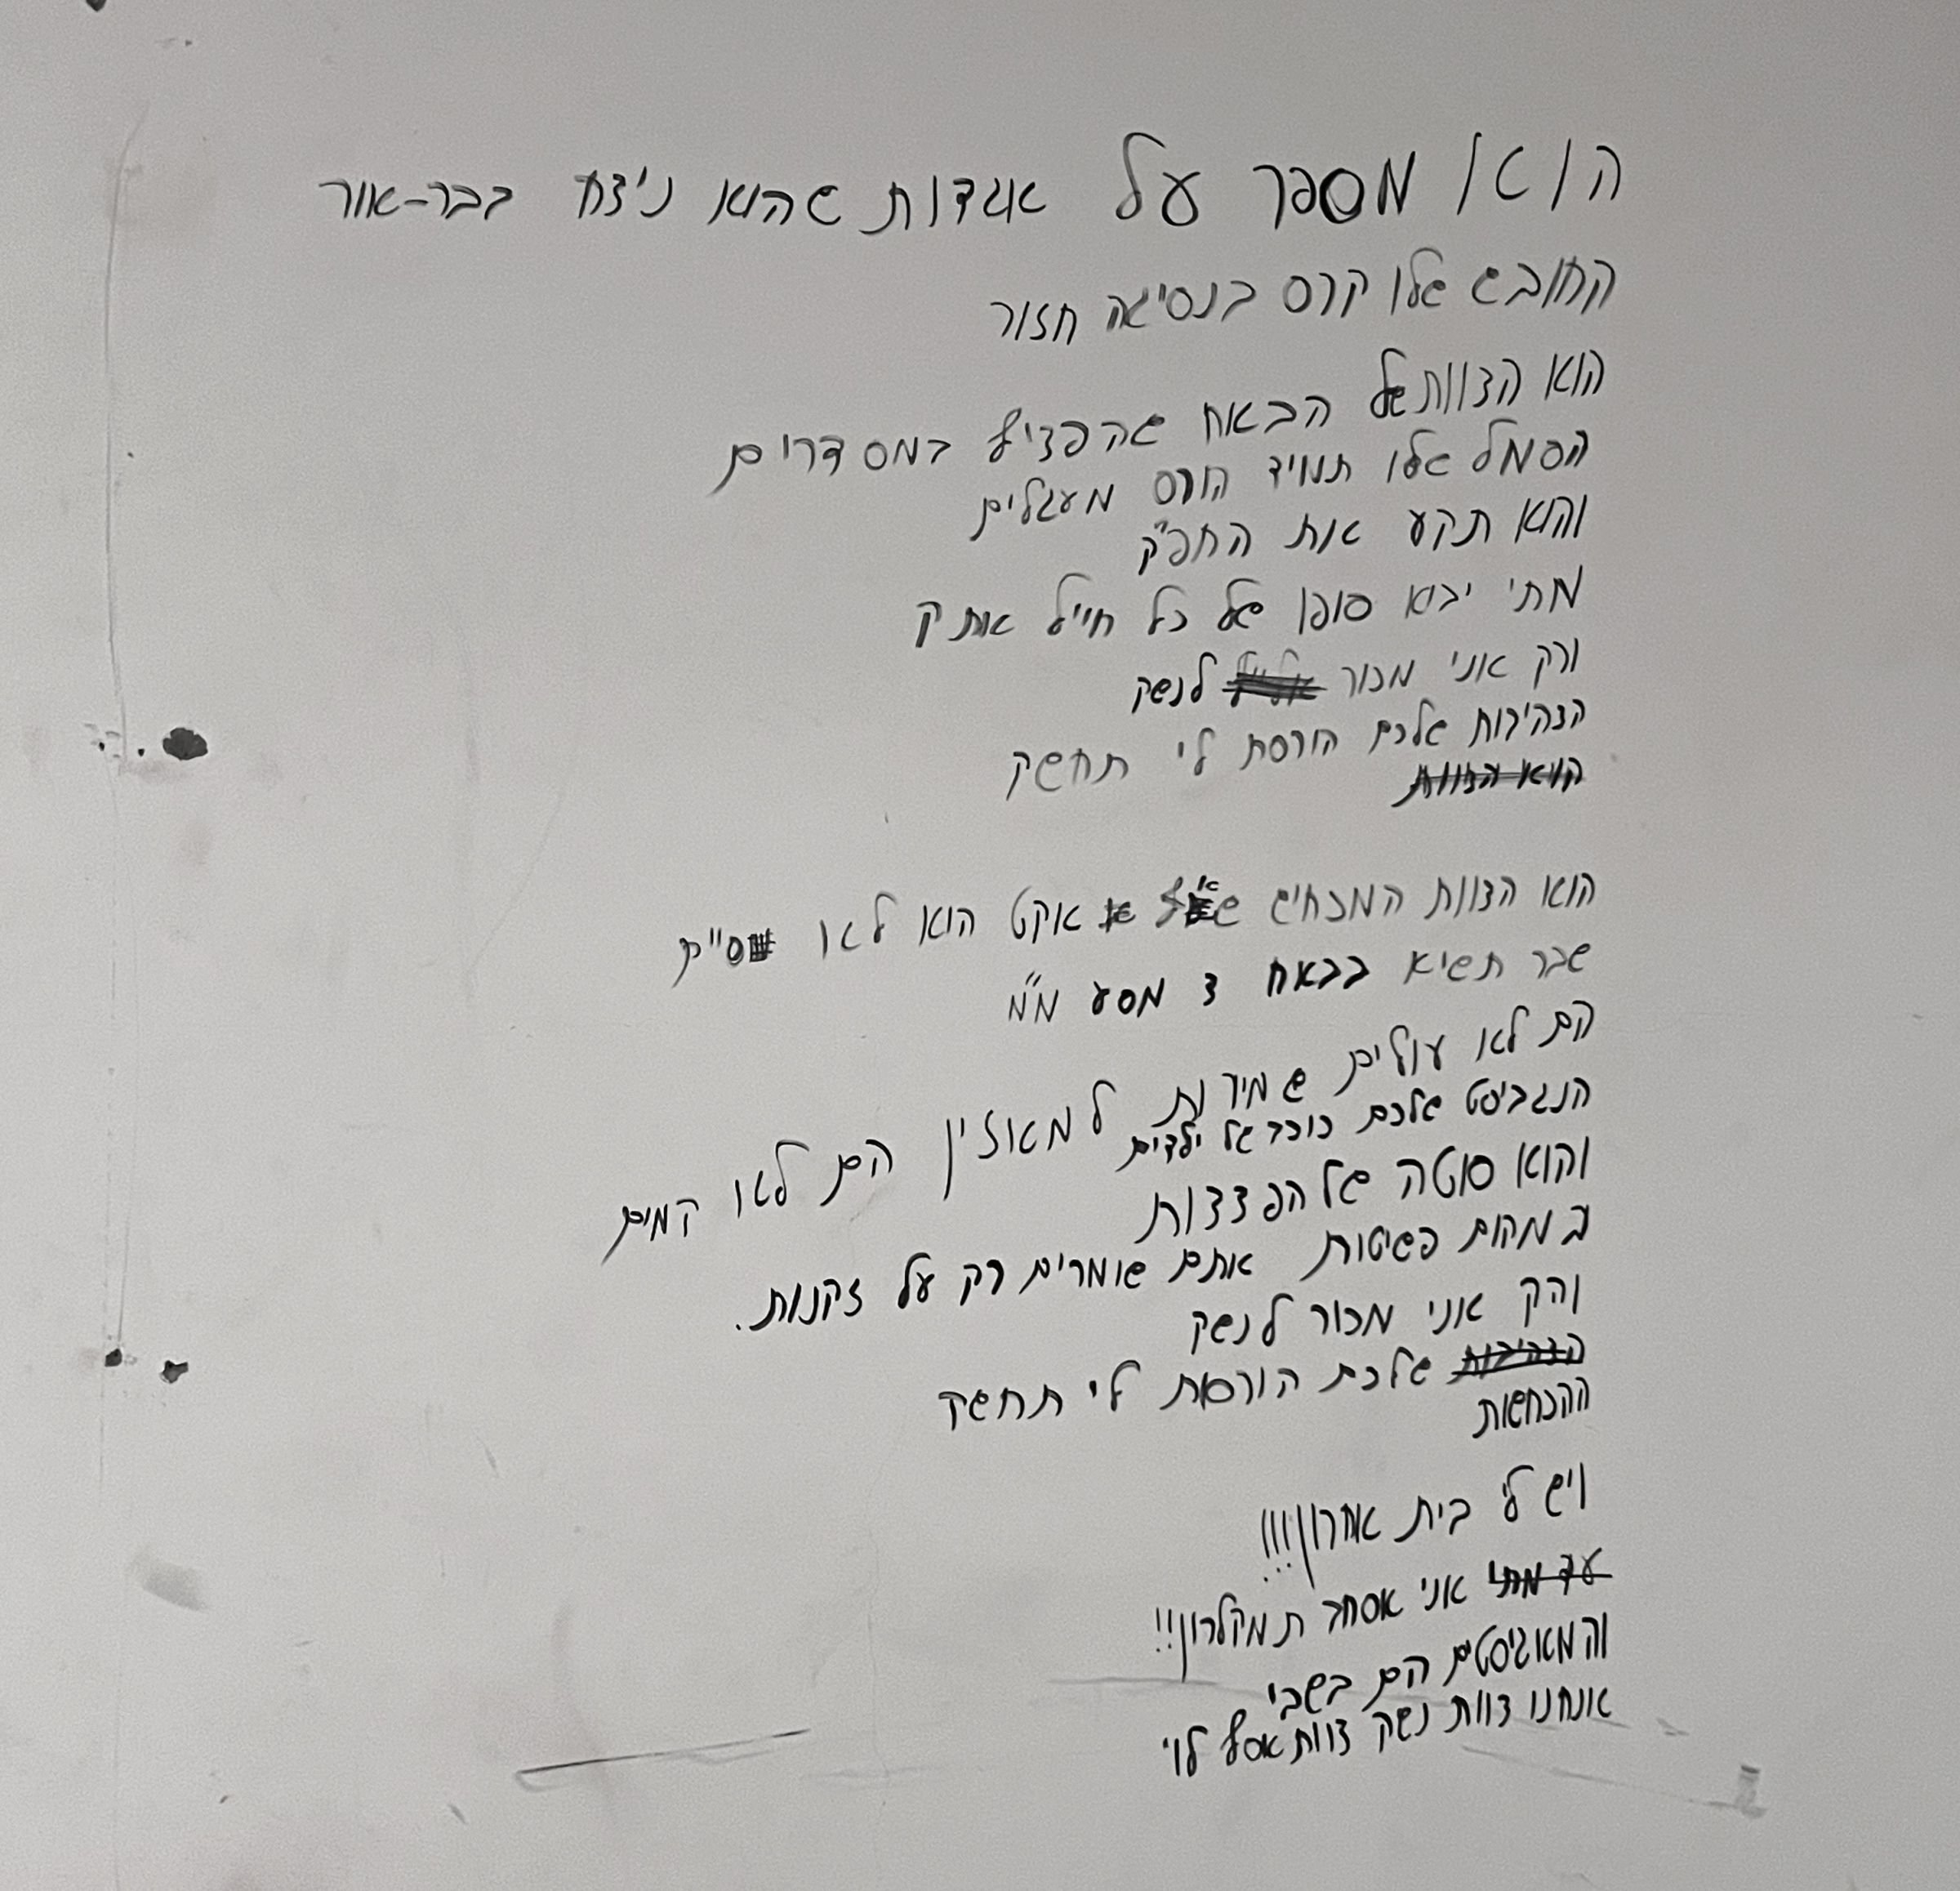 הואו מספר על אגדות שהוא ניצח בבר-אור
החובש שלו קרס בנסיגה חזור
הוא הצוות של הבאח שהפציץ במסדרים
הסמל שלו תמיד הורס מעגלים
והוא תקע את החפ"ק
מתי יבוא סופן של כל חייל אותק
ורק אני מכור לנשק
הצהיבות שלכם הורסת לי תחשק
הוא הצוות
הוא הצוות המכחיש אקט הוא לאו סיים
שבר תשיא בבאח 3 מסע מ"מ
הם לאו עולים שמירות למאוזין הם לאו קמים
הנגביסט שלכם כוכב של ילדים
והוא סוטה של הפצצות
במקום פשיטות אתם שומרים רק על זקנות.
והק אני מכור לנשק
הצהיבות שלכם הורסת לי תחשק
ההכחשות
ויש לי בית אחרון!!!
עד מתי אני אסחב ת מקלרון!!
והמאגיסטים הם בשבי
אנחנו צוות נשק צוות אסף לוי